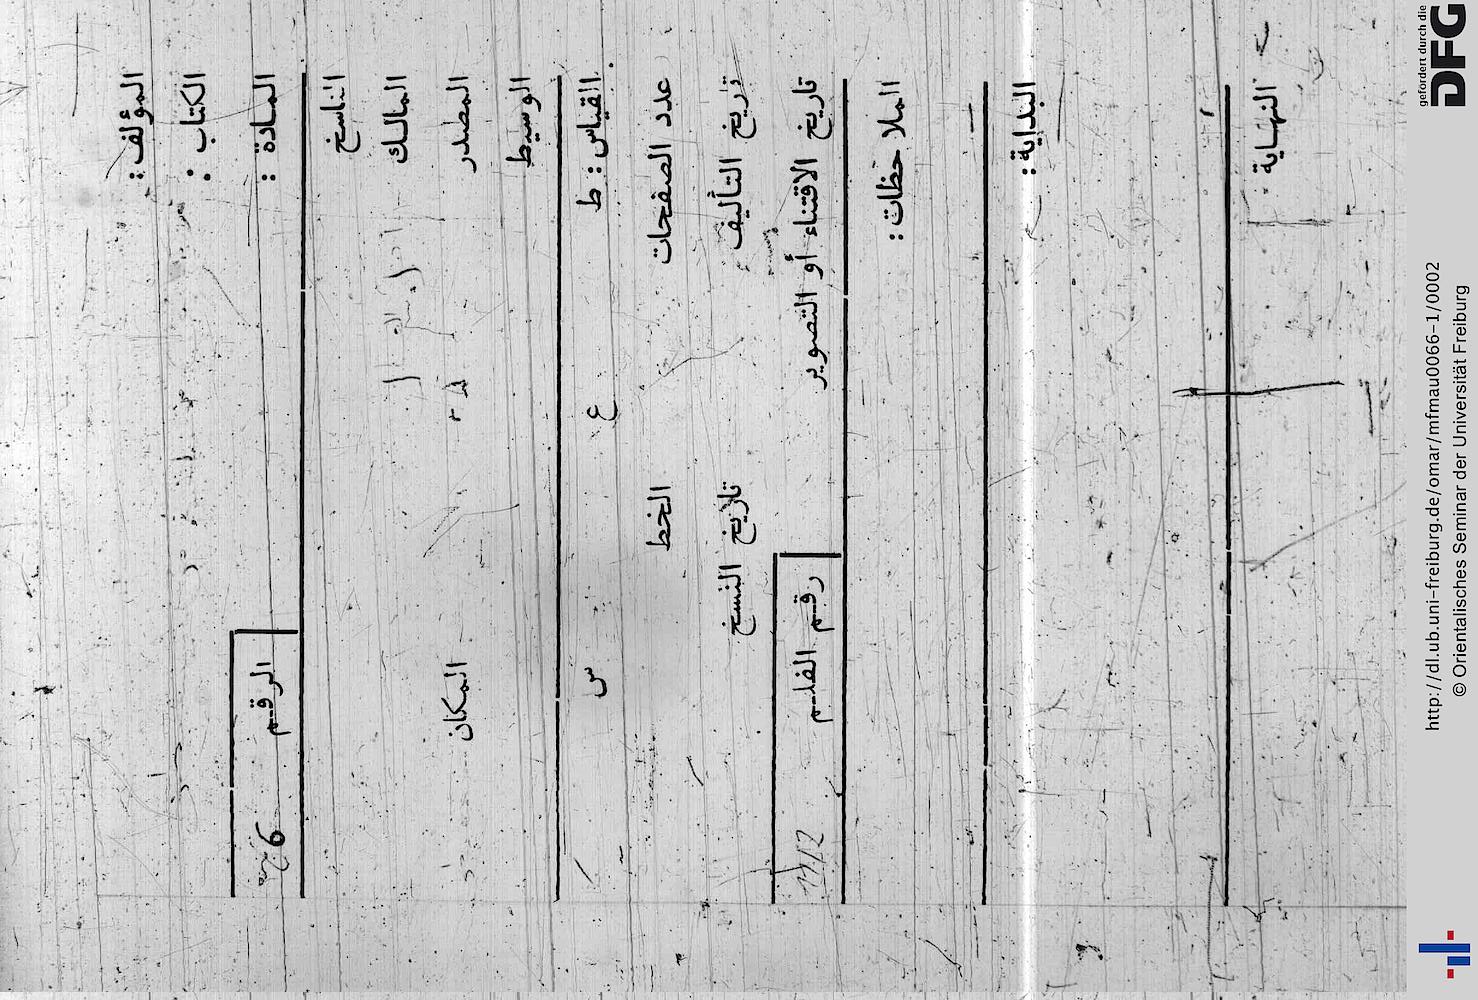 المؤلف :
الكتاب :
المادة :
الرقم
الناسخ
المالك
المصدر
المكان
الوسيط
القياس : ط
ع
س
عدد الصفحات
الخط
تاريخ التأليف
تاريخ النسخ
تاريخ الاقتناء أو التصوير
رقم الفلم
الملاحظات :
البداية :
النهاية :
gefördert durch die
DFG
http://dl.ub.uni-freiburg.de/omar/mfmau0066-1/0002
© Orientalisches Seminar der Universität Freiburg